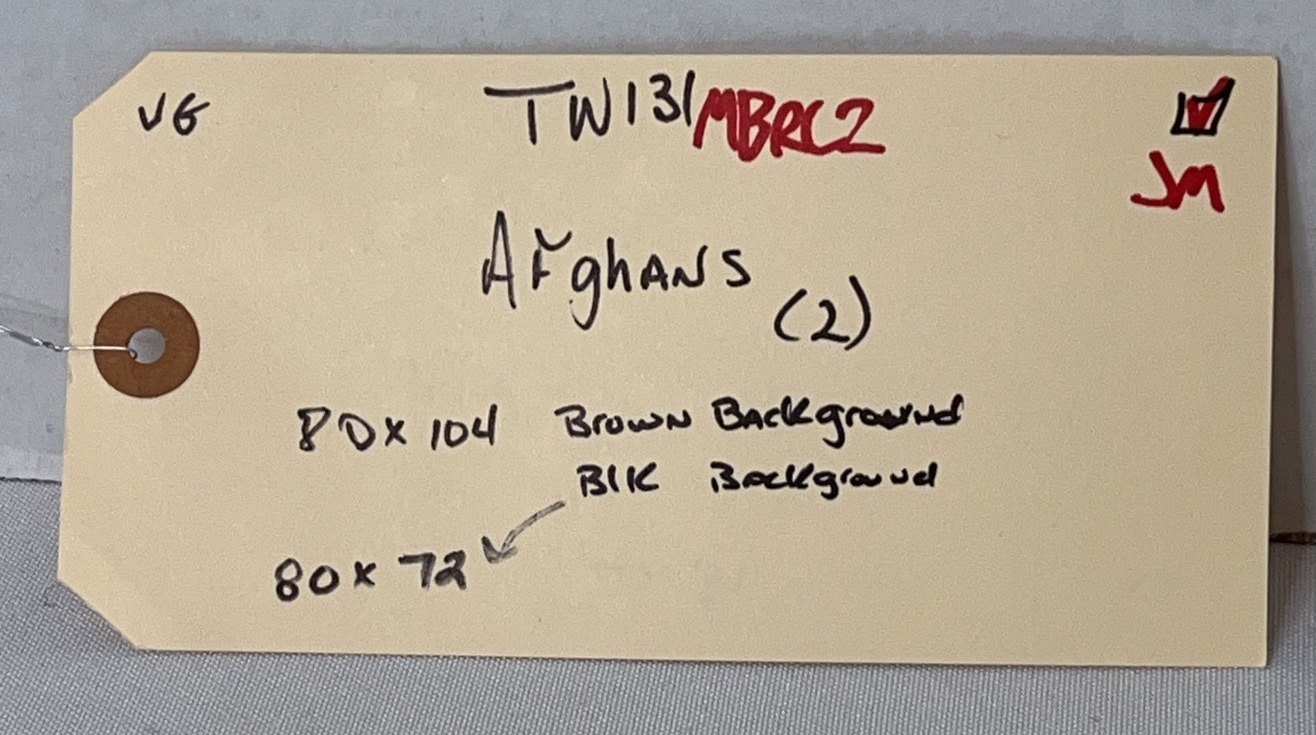 VG
TW131MBRC2
JM
Afghans
(2)
80x104 Brown Background
Blk Background
80x72